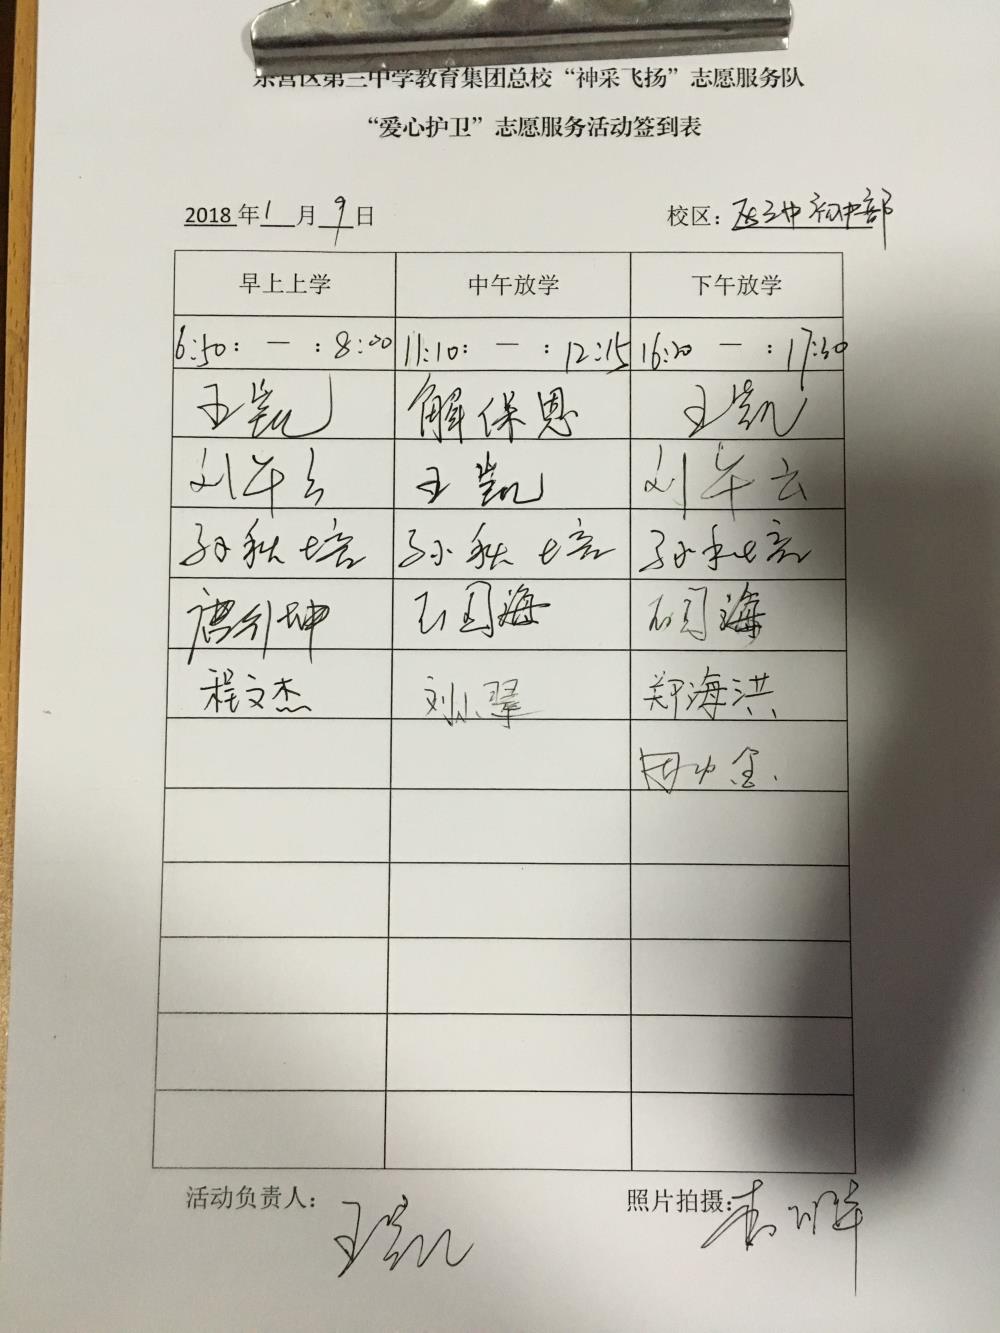 东营区第三中学教育集团总校“神采飞扬”志愿服务队
“爱心护卫”志愿服务活动签到表
2018年1月9日 校区：区三中初中部
早上上学 中午放学 下午放学
6:50: — :8:00 11:10: — :12:15 16:20 — :17:30
王凯 解保恩 王凯
刘午云 王凯 刘午云
孙秋培 孙秋培 孙秋培
唐介坤 石国海 石国海
程文杰 刘小翠 郑海洪
活动负责人：王凯 照片拍摄：